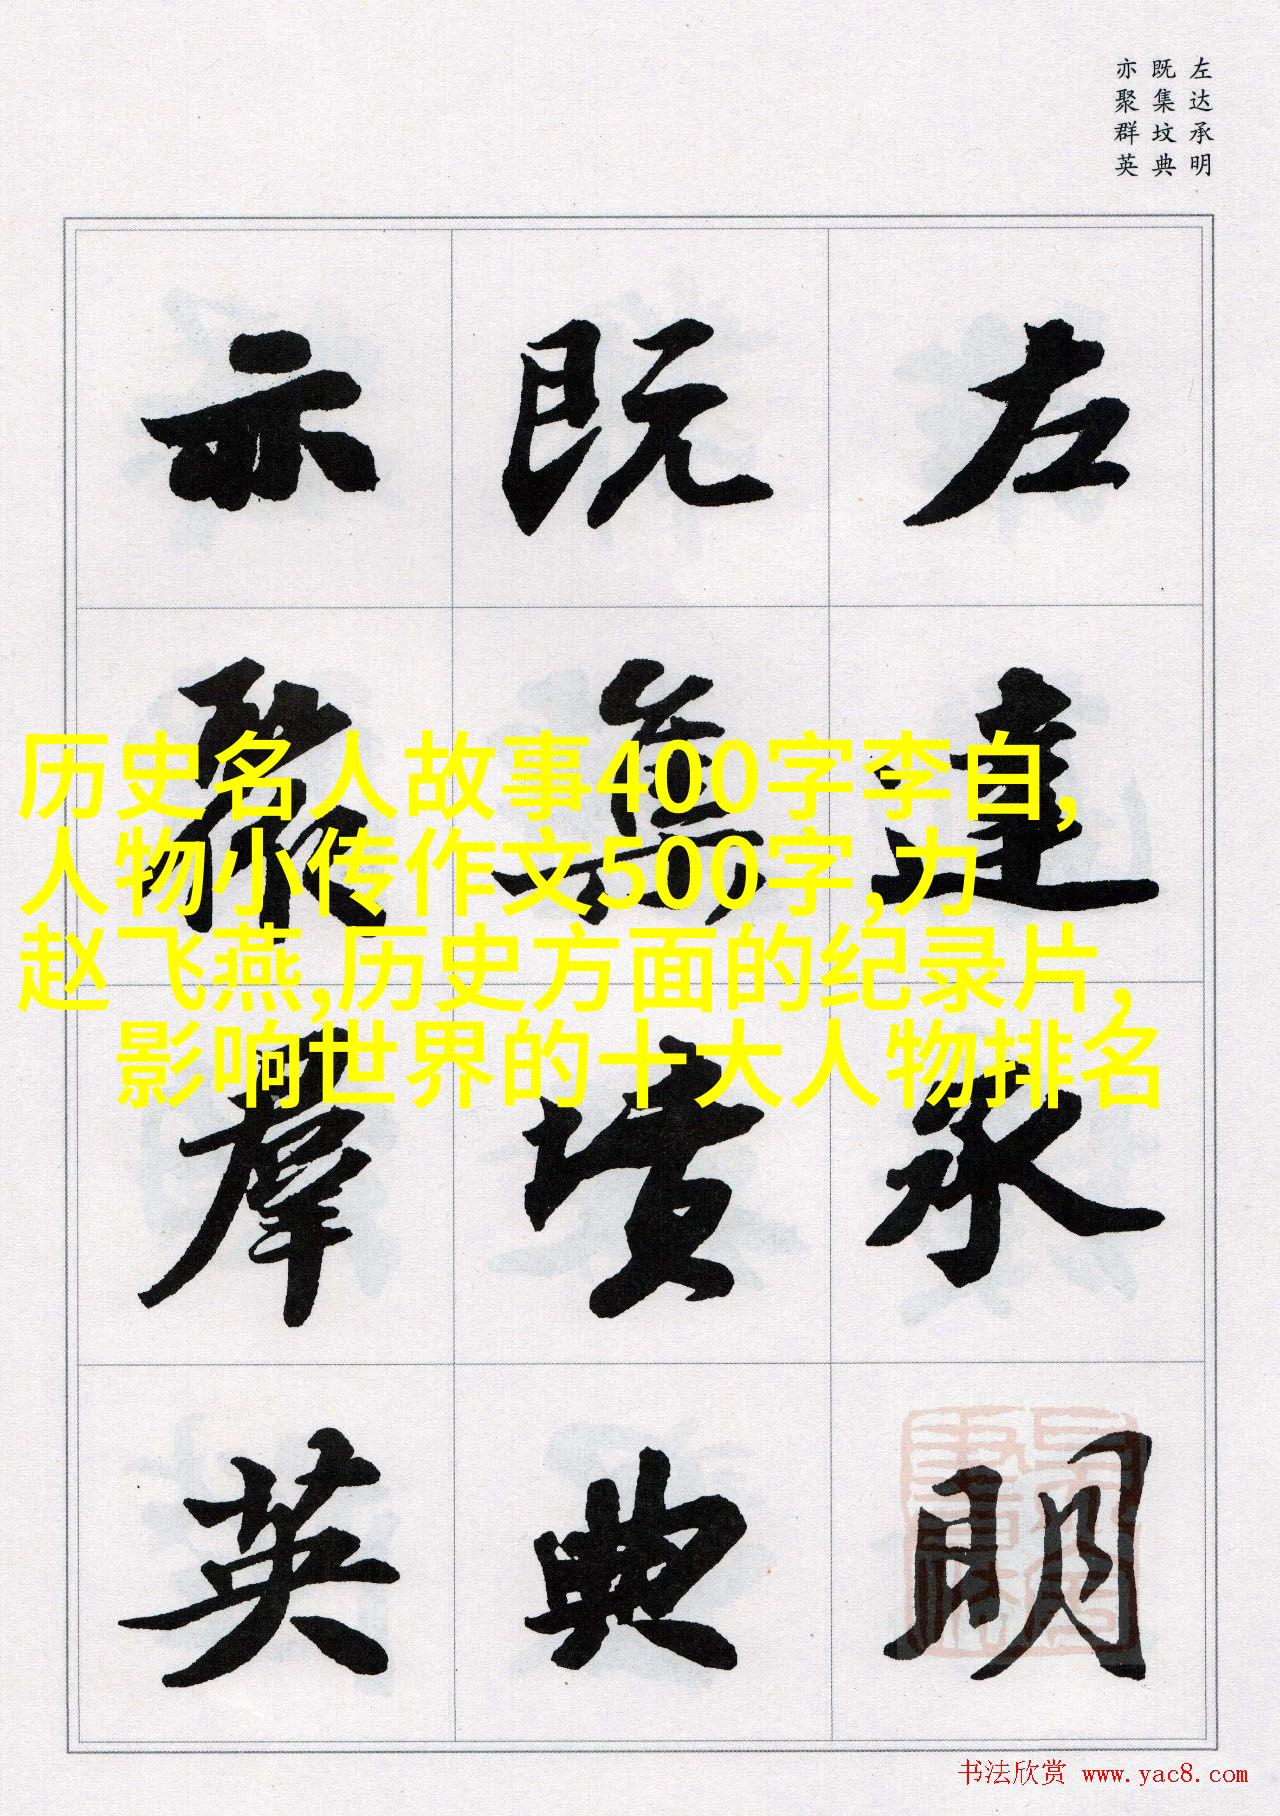 左达承明
既集坟典
亦聚群英
左达承明
既集坟典
亦聚群英
历史名人故事400字李白,
人物小传作文500字,力
赵飞燕,历史方面的纪录片,
影响世界的十大人物排名
书法欣赏 www.yac8.com